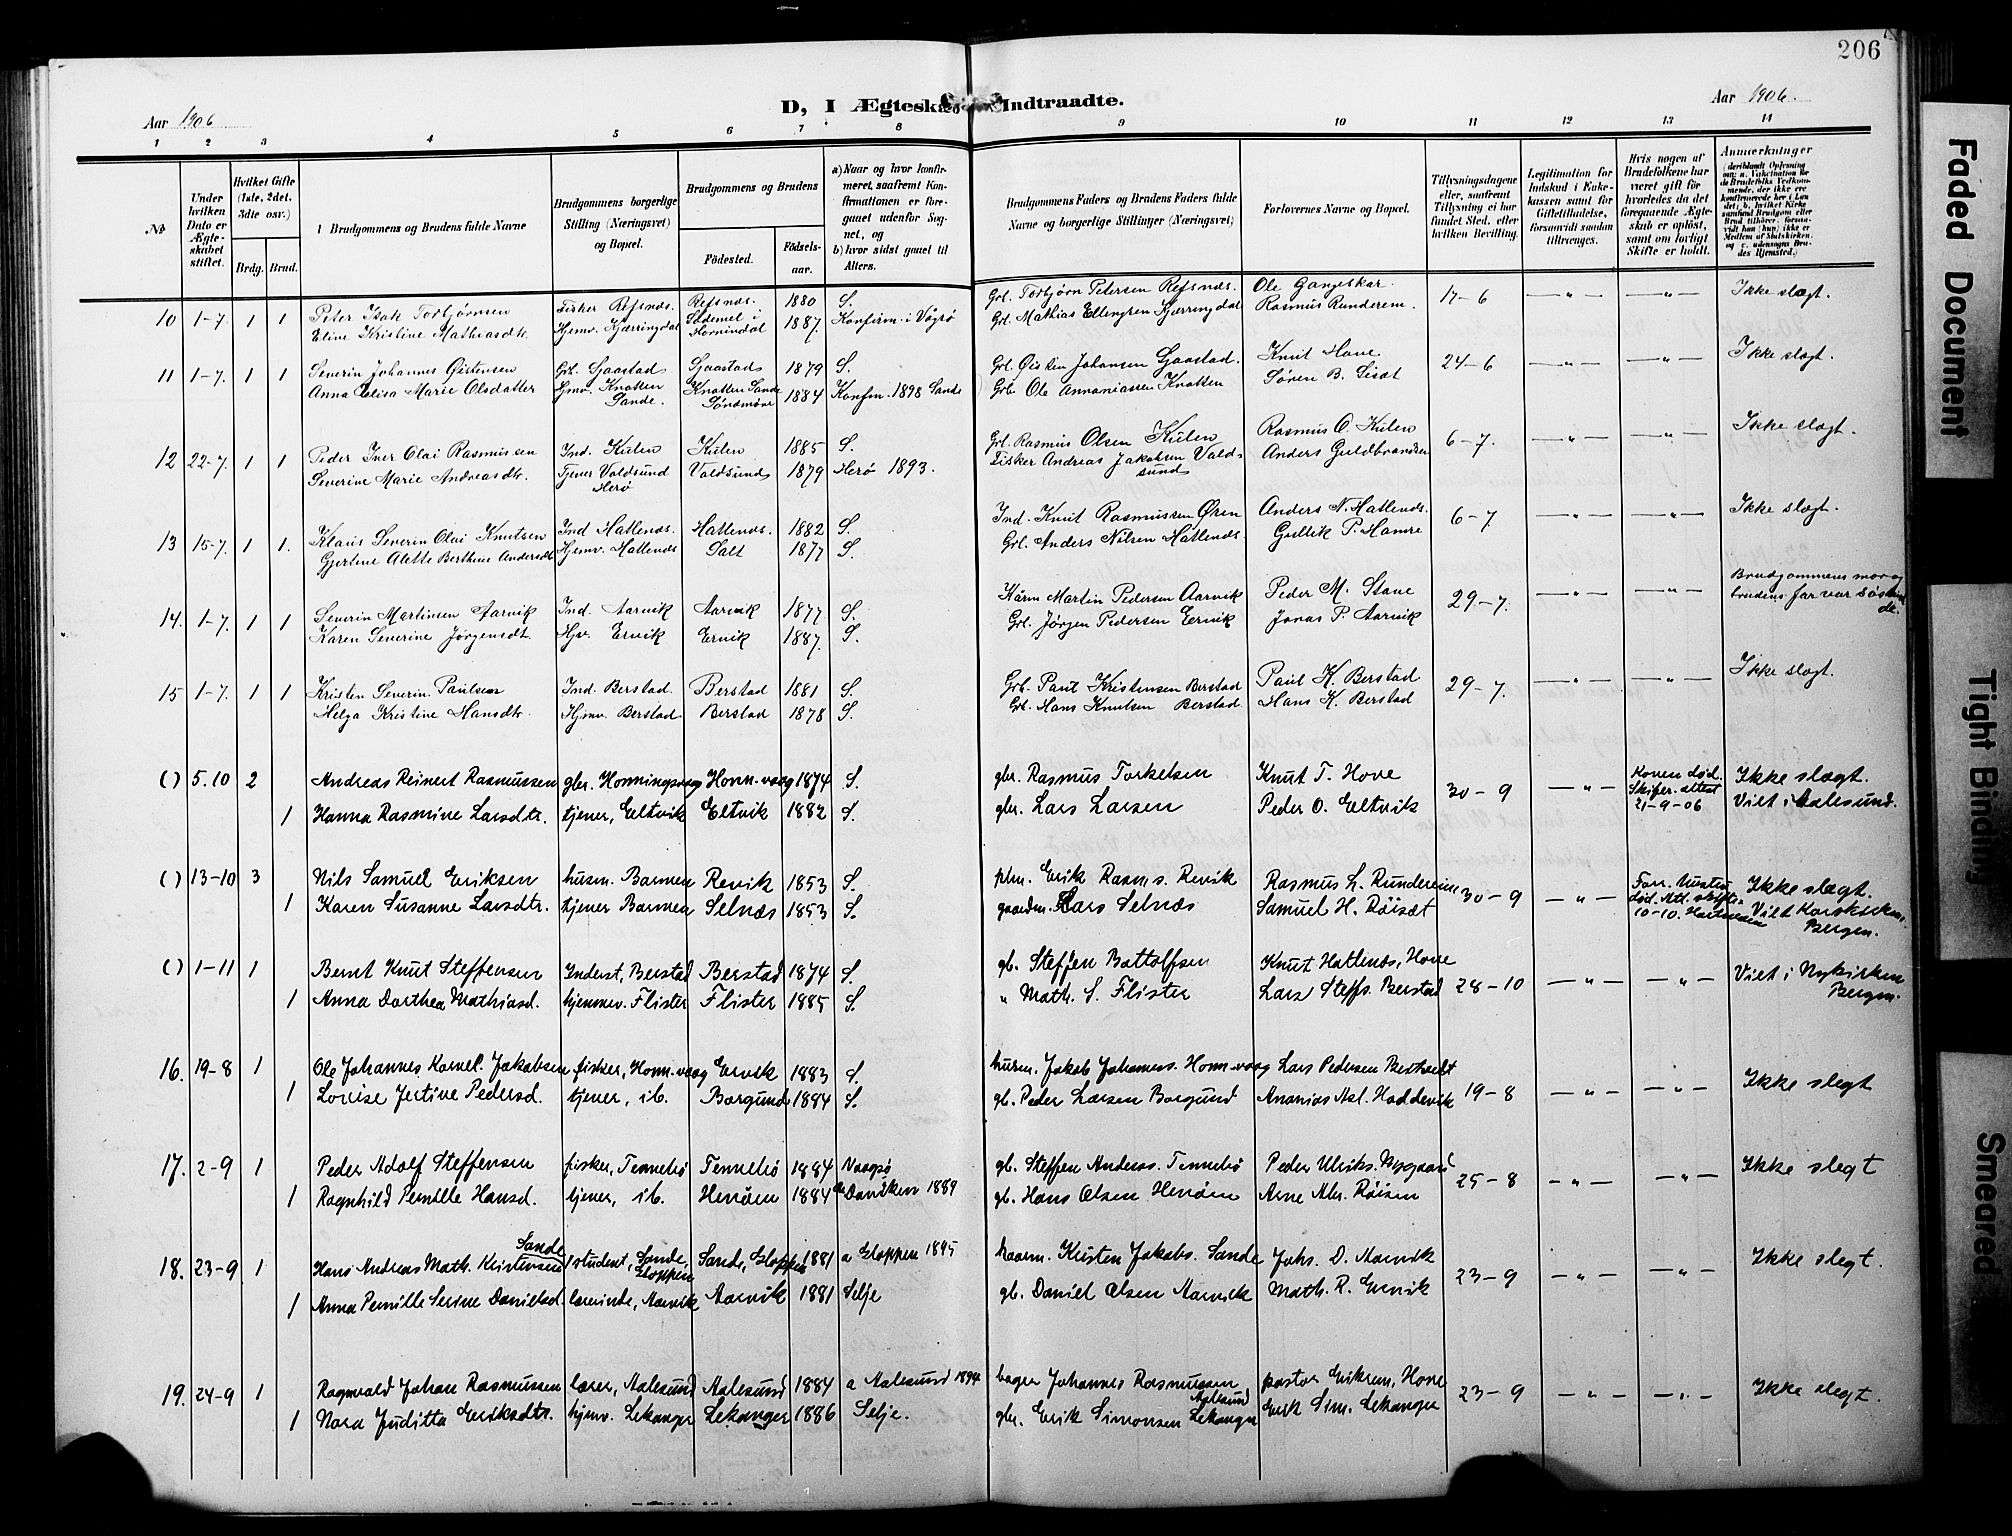 206
D, I Ægteskab Indtraadte.
Aar 1906
Aar 1906.
1 2 3 4 5 6 7 8 9 10 11 12 13 14
No
Under hvilken Dato er Ægteskabet stiftet.
Hvilket Gifte (1ste, 2det, 3dte osv.)
Brdg. Brud.
Brudgommens og Brudens fulde Navne
Brudgommens borgerlige Stilling (Næringsvei) og Bopæl.
Brudgommens og Brudens
Fødested.
Fødselsaar.
a) Naar og hvor konfirmeret, saafremt Konfirmationen er foregaaet udenfor Sognet, og
b) hvor sidst gaaet til Alters.
Brudgommens Faders og Brudens Faders fulde Navne og borgerlige Stillinger (Næringsvei)
Forlovernes Navne og Bopæl.
Tillysningsdagene eller, saafremt Tillysning ei har fundet Sted, efter hvilken Bevilling.
Legitimation for Indskud i Enkekassen samt for Giftetilladelse, forsaavidt saadan tiltrænges.
Hvis nogen af Brudefolkene har været gift før hvorledes da det foregaaende Ægteskab er opløst, samt om lovligt Skifte er holdt.
Anmærkninger
10 1-7. 1 1 Peter Isak Torbjørnsen Fisker Refsnæs. Refsnæs. 1880 S. Grb. Torbjørn Petersen Refsnæs. Ole Gangeskar 17-6 — " — — " — Ikke slægt.
Eline Kristine Mathiasdtr. Hjmv. Kjærringdal Hornindal 1887. Konfirm. i Vågsø Grb. Mathias Ellingsen Kjærringdal Rasmus Runderem.
11 1-7. 1 1 Severin Johannes Øistensen Grb. Sjaastad Sjaastad 1879 S. Grb. Øisten Johansen Sjaastad. Knut Hove 24-6 — " — — " — Ikke slægt.
Anna Elisa Marie Olsdatter Hjmv. Knotten Sande. Knotten Sande Søndmøre 1884 Konfm. 1898 Sande Grb. Ole Annaniassen Knotten Søren B.
12 22-7. 1 1 Peder Iver Olai Rasmussen Ind. Kulen Kulen 1885 S. Grb. Rasmus Olsen Kulen Rasmus O. Kulen 6-7. — " — — " — Ikke slægt.
Severine Marie Andreasdtr. Tjener Voldsund Herø Voldsund 1879 Herø 1893. Fisker Andreas Jakobsen Voldsund Anders Guldbrandsen
13 15-7. 1 1. Klaus Severin Olai Knutsen Ind Hatlenæs. Hatlenæs. 1882 S. Ind. Knut Rasmussen Øren Anders N. Hatlenæs. 6-7 — " — — " — Ikke slægt.
Gjertine Alette Berthine Andersdtr. Hjmv. Hatlenæs 1877 S. Grb. Anders Nilsen Hatlenæs. Gullik P. Hamre
14. 1-7. 1 1 Severin Martinsen Aarvik Ind. Aarvik Aarvik 1877 S. Martin Pedersen Aarvik Peder M. Stave 29-7. — " — — " — Brudgommens mor og
Karen Severine Jørgensdt. Hjv. Ervik Ervik 1887. S. Grb. Jørgen Pedersen Ervik Jonas P. Aarvik brudens far var søskende.
15 1-7. 1 1 Kristen Severin Paulsen Ind. Berstad. Berstad 1881 S. Grb. Paul Kristensen Berstad Paul K. Berstad 29-7. — " — — " — Ikke slægt.
Helga Kristine Hansdtr. Hjmv. Berstad Berstad 1878 S. Grb. Hans Knutsen Berstad Hans K. Berstad
( ) 5.10 2 Andreas Reinert Rasmussen gbr. Honningsvaag Honn-vaag 1874 S. gbr. Rasmus Torkelsen Knut T. Hove 30-9 — " — Konen død. Skifter. attest 21-9-06 Ikke slægt.
1 Hanna Rasmine Larsdtr. tjener, Eltvik Eltvik 1882 S. gbr. Lars Larsen Peder O. Eltvik Viet i Aalesund.
( ) 13-10 3 Nils Samuel Eriksen husm. Barmen Revik 1853 S. plm. Erik Rasms. Revik Rasmus L. Runderein 30-9 — " — Forr. hustru død. Att. skifte 10-10. Ikke slægt.
1 Karen Susanne Larsdtr. tjener Barmen Selnæs 1853 S. gaardm. Lars Selnæs Samuel H. Røiset Viet Korskirken, Bergen.
( ) 1-11 1 Bernt Knut Steffensen Inderst, Berstad Berstad 1874 S. gb. Steffen Bottolfsen Knut Hatlenæs, Hove 28-10 — " — — " — Viet i Nykirken
1 Anna Dorthea Mathiasd. hjemmev. Flister Flister 1885 S. " Math. S. Flister Lars Steffs. Berstad Bergen.
16. 19-8 1 Ole Johannes Kornel. Jakobsen fisker, Honn-vaag Ervik 1883 S. husm. Jakob Johannes. Honn-vaag Lars Pedersen 19-8 — " — — " — Ikke slegt
1 Lovise Jertine Pedersd. tjener, ib. Borgund 1884 S. gb. Peder Larsen Borgund Ananias Asl. Hoddevik
17. 2-9 1 Peder Adolf Steffensen fisker, Tennebø Tennebø 1884 Vaagsø gb. Steffen Anders. Tennebø Peder Ulriks. Nygaard 25-8 — " — — " — Ikke slegt
1 Ragnhild Pernille Hansd. tjener, ib. Henøen 1884 Daviken 1889 gb. Hans Olsen Henøen Arne Abr. Røisen
18. 23-9 1 Hans Andreas Math. Kristensen Sande student, Sande, Gloppen Sande, Gloppen 1881 a Gloppen 1895 Kristen Jakobs. Sande Johs. D. Aarvik 23-9 — " — — " — Ikke slegt.
1 Anna Pernille Serine Danielsd. lærerinde, Aarvik Aarvik 1881 Selje gb. Daniel Olsen Aarvik Math. R. Ervik
19. 24-9 1 Ragnvald Johan Rasmussen lærer, Aalesund Aalesund 1884 a Aalesund 1894 bager Johannes Rasmussen Aalesund pastor Eriksen, Hove 23-9 — " — — " — Ikke slegt.
1 Nora Juditta Eriksdtr. hjmv. Lekanger Lekanger 1886 Selje. gbr. Erik Simonsen Lekanger Erik Sim. Lekanger
Faded Document
Tight Binding
Smeared